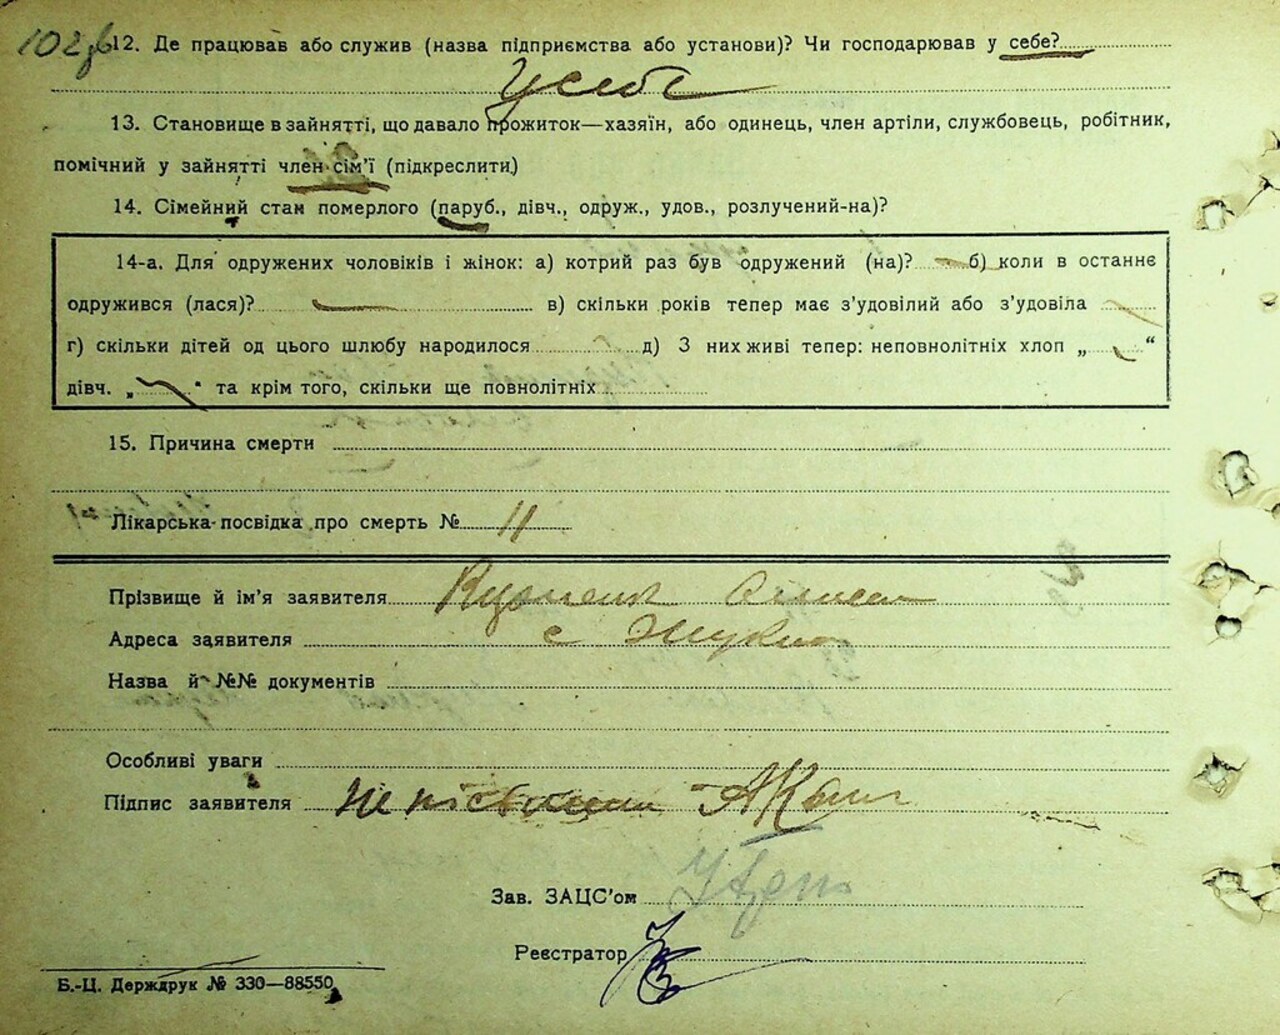 12. Де працював або служив (назва підприємства або установи)? Чи господарював у себе?
У себе
13. Становище в зайнятті, що давало прожиток—хазяїн, або одинець, член артілі, службовець, робітник,
помічний у зайнятті член сім'ї (підкреслити)
14. Сімейний стам померлого (паруб., дівч., одруж., удов., розлучений-на)?
14-а. Для одружених чоловіків і жінок: а) котрий раз був одружений (на)? б) коли в останнє
одружився (лася)? в) скільки років тепер має з'удовілий або з'удовіла
г) скільки дітей од цього шлюбу народилося д) З них живі тепер: неповнолітніх хлоп „ “
дівч. „ “ та крім того, скільки ще повнолітніх
15. Причина смерти
Лікарська посвідка про смерть № 11
Прізвище й ім'я заявителя
Адреса заявителя с
Назва й №№ документів
Особливі уваги
Підпис заявителя
Зав. ЗАЦС'ом
Реєстратор
Б.-Ц. Держдрук № 330—88550